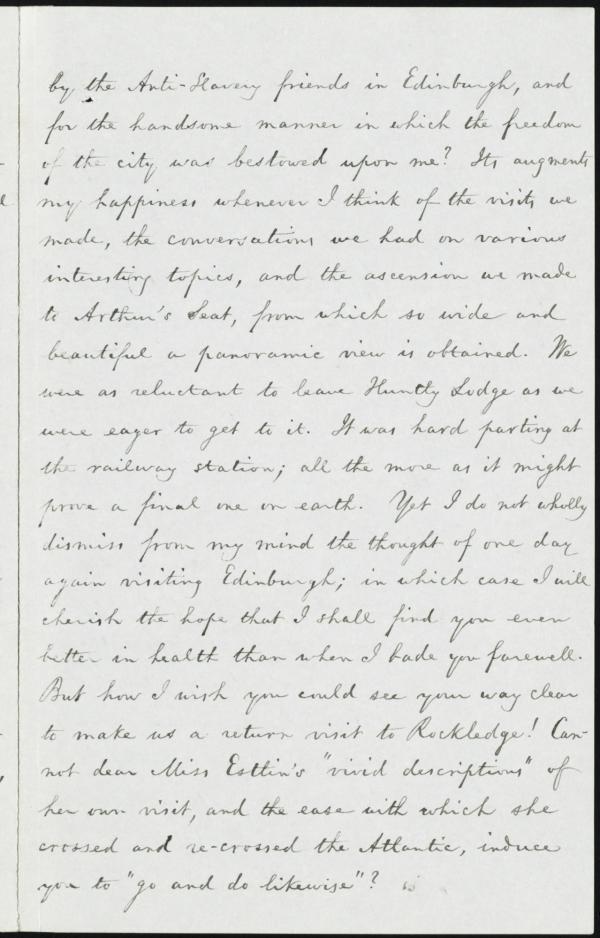 by the Anti-Slavery friends in Edinburgh, and
for the handsome manner in which the freedom
of the city was bestowed upon me? Its augments
my happiness whenever I think of the visits we
made, the conversations we had on various
interesting topics, and the ascension we made
to Arthur's Seat, from which so wide and
beautiful a panoramic view is obtained. We
were as reluctant to leave Huntly Lodge as we
were eager to get to it. It was hard parting at
the railway station; all the more as it might
prove a final one on earth. Yet I do not wholly
dismiss from my mind the thought of one day
again visiting Edinburgh; in which case I will
cherish the hope that I shall find you even
better in health than when I bade you farewell.
But how I wish you could see your way clear
to make us a return visit to Rockledge! Can-
not dear Miss Estlin's "vivid descriptions" of
her own visit, and the ease with which she
crossed and re-crossed the Atlantic, induce
you to "go and do likewise"?